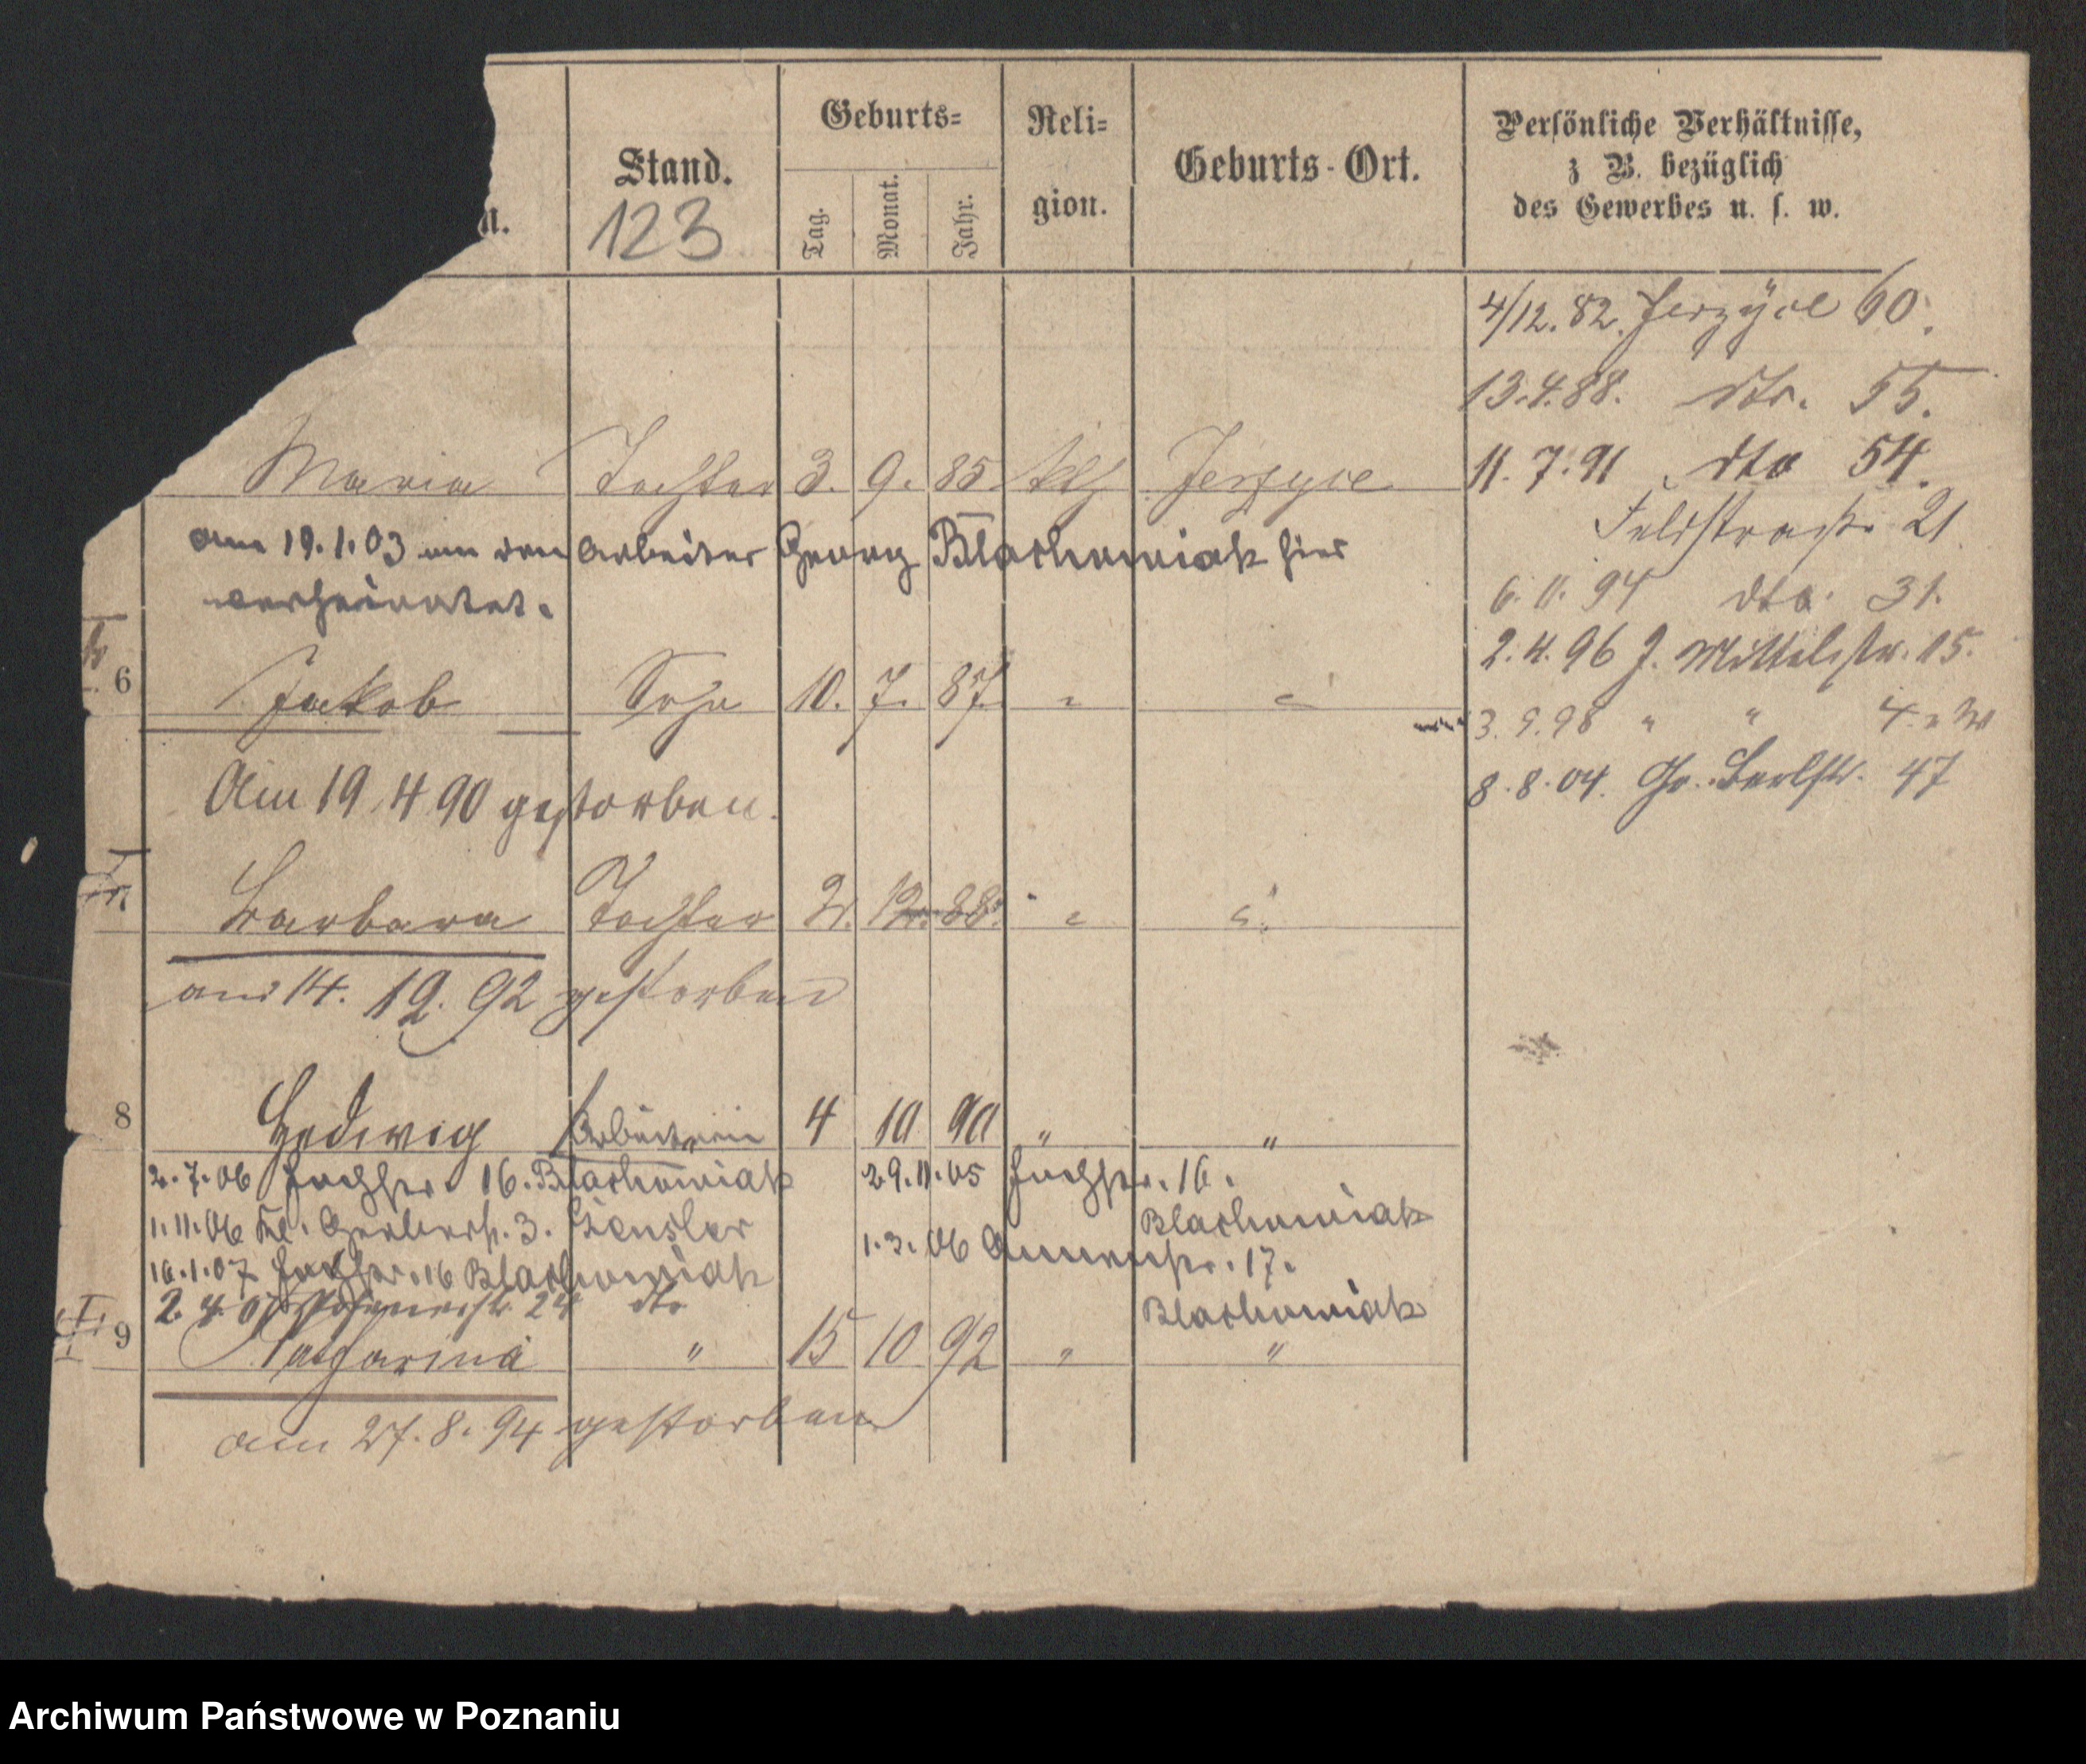 n.
Stand.
123
Geburts=
Tag.
Monat.
Jahr.
Reli=
gion.
Geburts-Ort.
Persönliche Verhältnisse,
z B. bezüglich
des Gewerbes u. s. w.
4/12.82. Jerzyce 60.
13.4.88. dto. 55.
11.7.91 dto 54.
Feldstraße 21
6.11.94 dto. 31.
2.4.96 J. Mittelstr. 15.
3.9.98 " " 4
8.8.04. Gr. Berlstr. 47
Maria Tochter 3. 9. 85 kth Jerzyce
am 19.1.03 mit dem Arbeiter Georg Blachowiak hier
verheiratet.
6 Jakob Sohn 10. 7. 87. " "
Am 19.4 90 gestorben.
Barbara Tochter 2. 12. 88. " "
am 14. 12. 92 gestorben
8 Hedwig Arbeiterin 4 10 90 " "
2.7.06 16. Blachowiak
29.11.05 16.
Blachowiak
1.11.06 Kl. Gerberstr. 3.
1.3.06 17.
Blachowiak
16.1.07 16 Blachowiak
2.4.07 Posenerstr. 24 dto
9 Katharina " 15 10 92 " "
am 27.8.94 gestorben
Archiwum Państwowe w Poznaniu